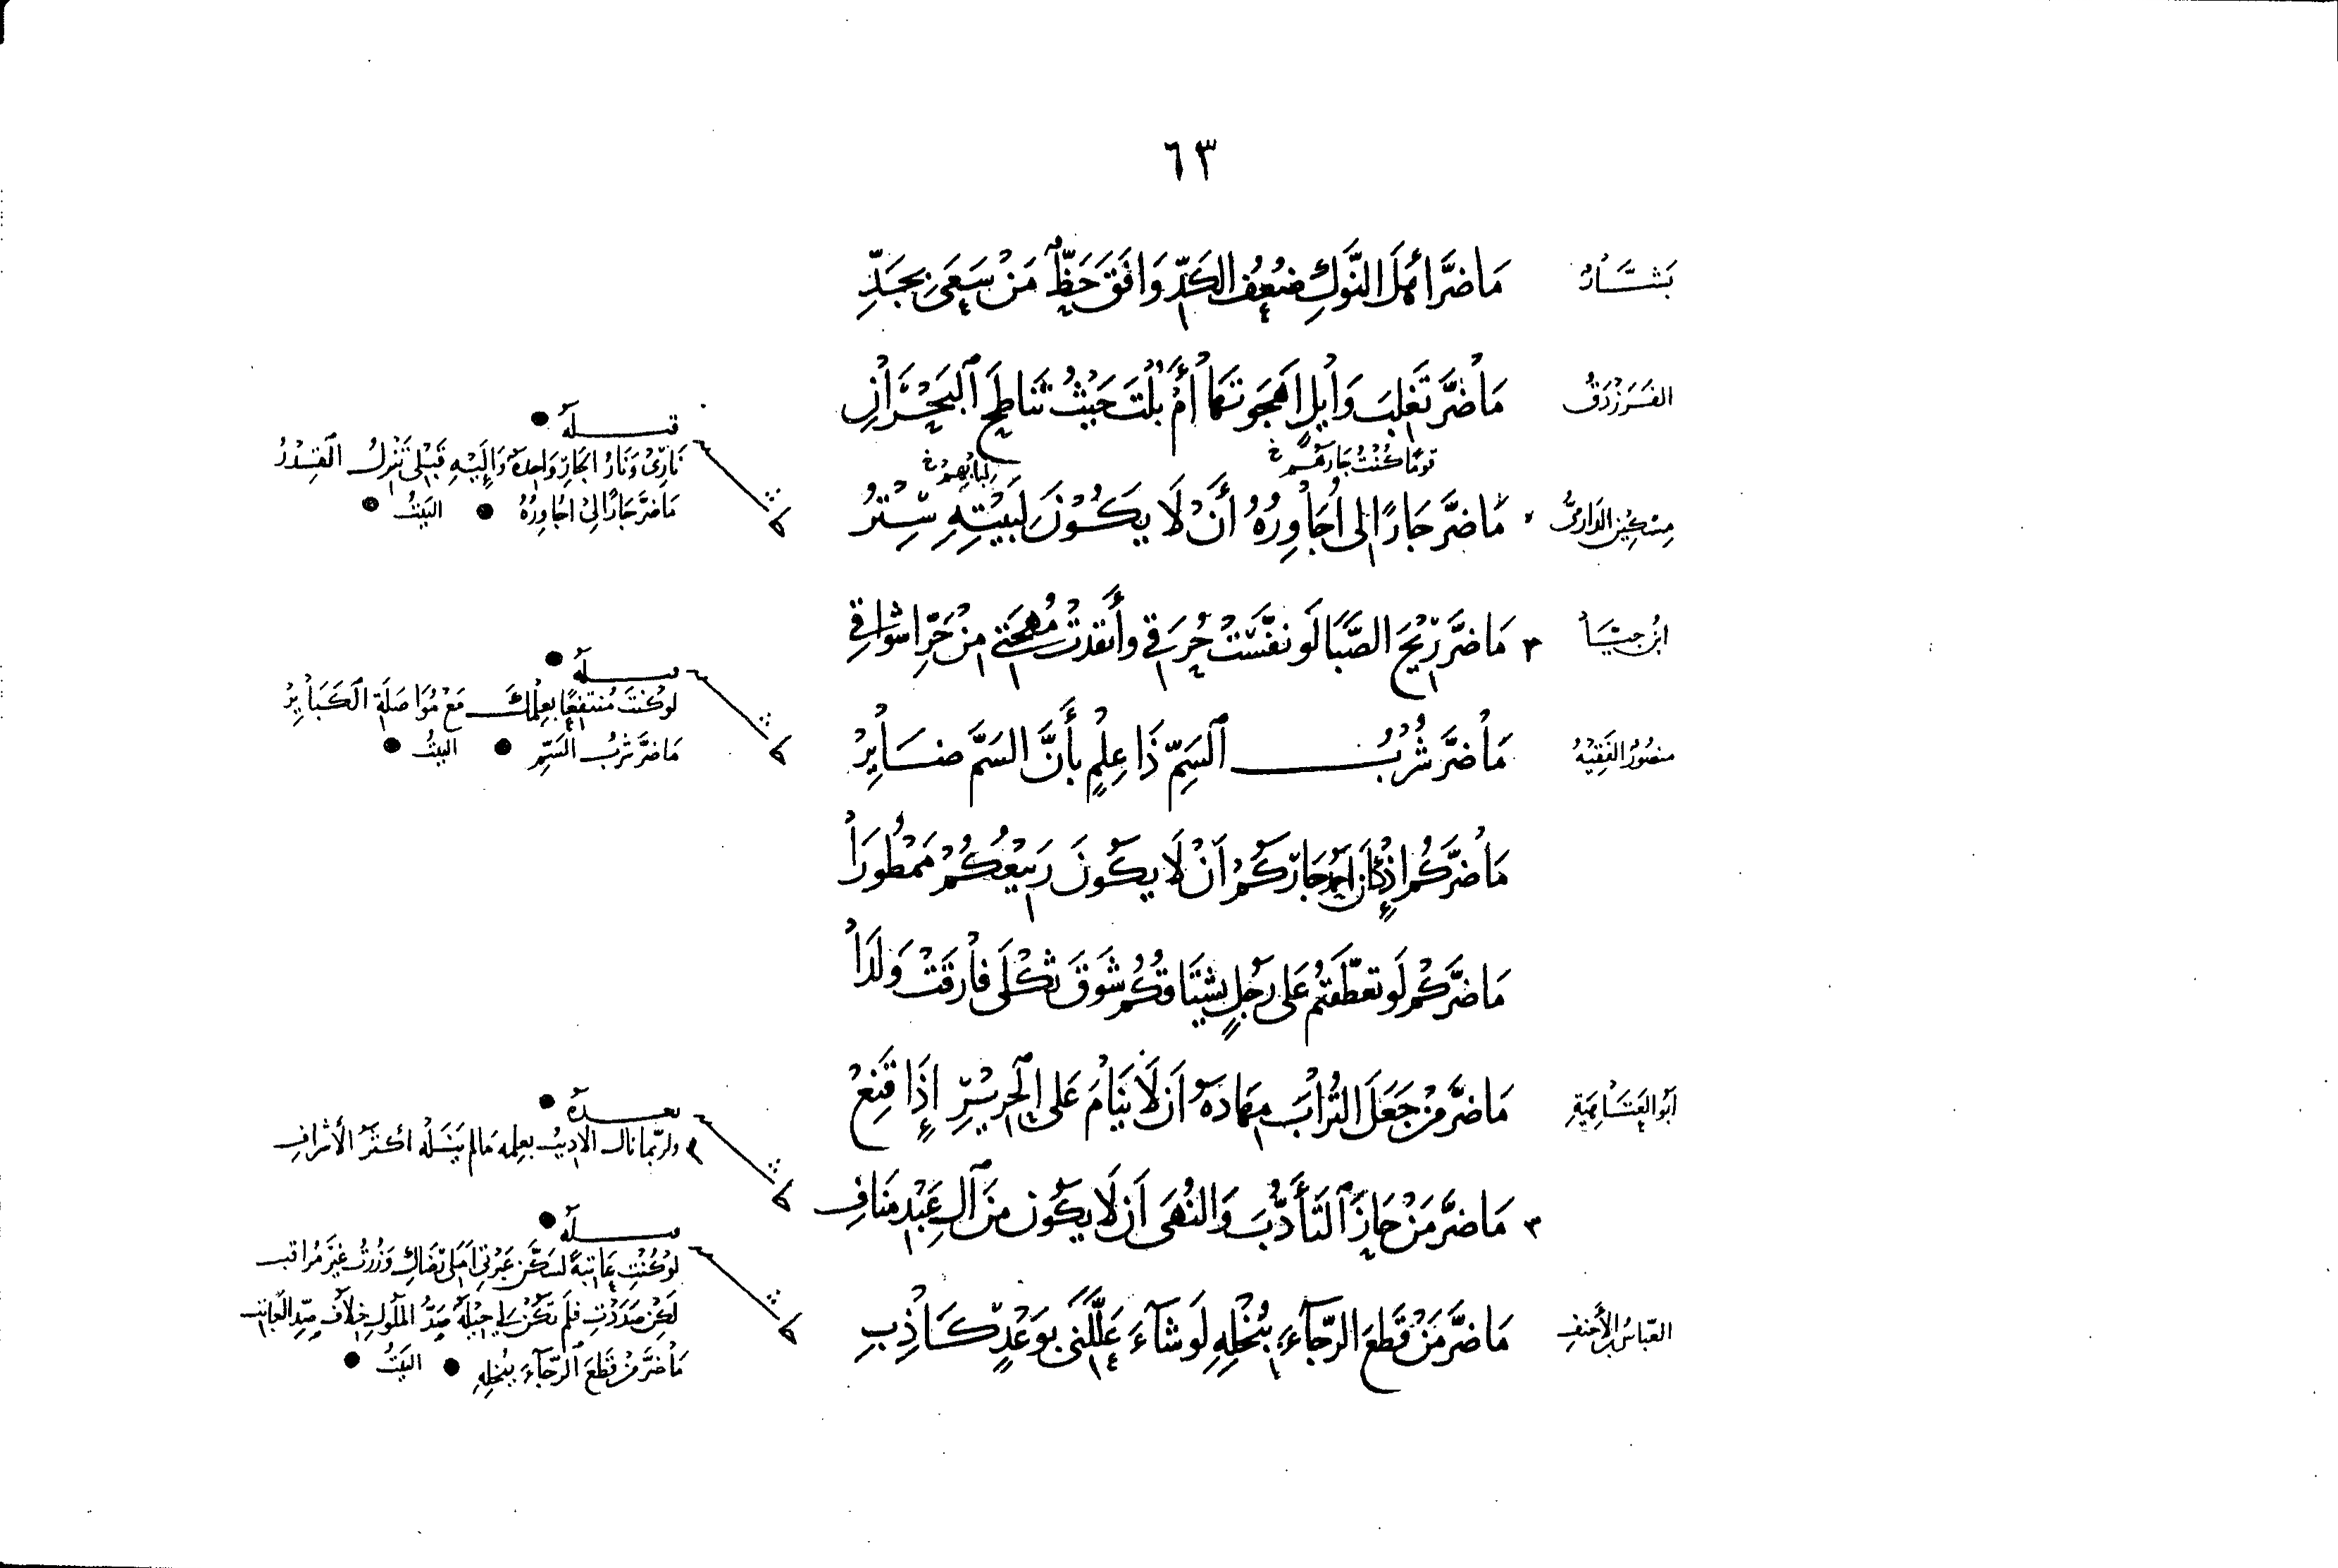 ٦٣
بَشَّارُ
مَا ضَرَّ أهْلَ النَّوكِ ضُعْفُ الكَدِّ وَافَقَ حَظّاً مَنْ سَعَى بِجَدِّ
الفَرَزْدَقُ
مَا ضَرَّ تَغْلِبَ وَائِلٍ أَهَجَوتَهَا أَمْ بُلْتَ حَيْثُ تَنَاطَحَ البَحْرَانِ
قومًا كُنْتُ جَارَهُمْ خ
لِبَابِهِمْ خ
مِسْكِينُ الدَارِمىُّ
مَا ضَرَّ جَارًا لِى أُجَاوِرُهُ أَنْ لَا يَكُوْنَ لِبَيْتِهِ سِتْرُ
قبله
نَارِىْ وَنَارُ الجَارِ وَاحِدَةٌ وَإِلَيْهِ قَبْلِى تَنْزِلُ القِدْرُ
مَا ضَرَّ جَارًا لِىْ اجَاوِرُهُ البَيْتُ
ابْنُ جَيَّا
٣ مَا ضَرَّ رِيْحَ الصَّبَا لَو نفَّسَتْ حُرَقِي وأَنقَذتْ مُهْجَتِي مِنْ حَرِّ اشْوَاقِي
منصُورُ الفَقِيْهُ
مَا ضَرَّ شُرْبُ السَمِّ ذَا عِلْمٍ بأَنَّ السَمَّ ضَائِرْ
قبله
لوكُنْتَ مُنتَفِعًا بعِلْمِكَ مَعْ مُوَاصَلَةِ الكَبَائِرْ
مَا ضَرَّ شُرْبُ السَمِّ البيتُ
مَا ضَرَّكُم إذْ كَانَ أحْمَد جَارَكُمْ أَنْ لَا يكُونَ رَبِيْعُكُمْ مَمْطُورَا
مَا ضَرَّكُم لَو تعَطَّفْتُم عَلى رَجُلٍ يَشْتَاقُكُم شَوْقَ ثكْلَى فَارَقَتْ وَلَدَا
أبُو العَتَاهِيَةِ
مَا ضَرَّ مَنْ جَعَلَ التُرَابَ مِهَادَهُ أَن لَا يَنَامَ عَلى الحَرِيْرِ إِذَا قَنِعْ
بعده
ولربّما نال الاديبُ بعِلمه مَالم يَنَلْهُ اكثَرُ الأشرافِ
٣ مَا ضَرَّ مَنْ حَازَ التَأَدُّبَ وَالنُهَى أَن لَا يَكُون مِنَ آلِ عَبْدِ مَنَافِ
العبّاسُ بْن الأَحْنَفِ
مَا ضَرَّ مَنْ قَطَعَ الرَّجَآءَ بِبُخْلِهِ لَو شَآءَ عَلَّلَنِى بِوَعْدٍ كَاذِبِ
قبله
لوْ كُنْتِ عَاتِبَةً لسَكَّنَ عَبْرَتِي أَمَلى رِضَاكِ وَزُرْتُ غَيْرَ مُرَاقب
لكِنْ صَدَدْتِ فلَم تَكُنْ لي حِيْلَةٌ صَدُّ المَلُولِ خِلَافُ صَدِّ العَاتِبِ
مَا ضَرَّ مَنْ قَطَعَ الرَّجَآءَ بِبُخلِهِ البَيتُ